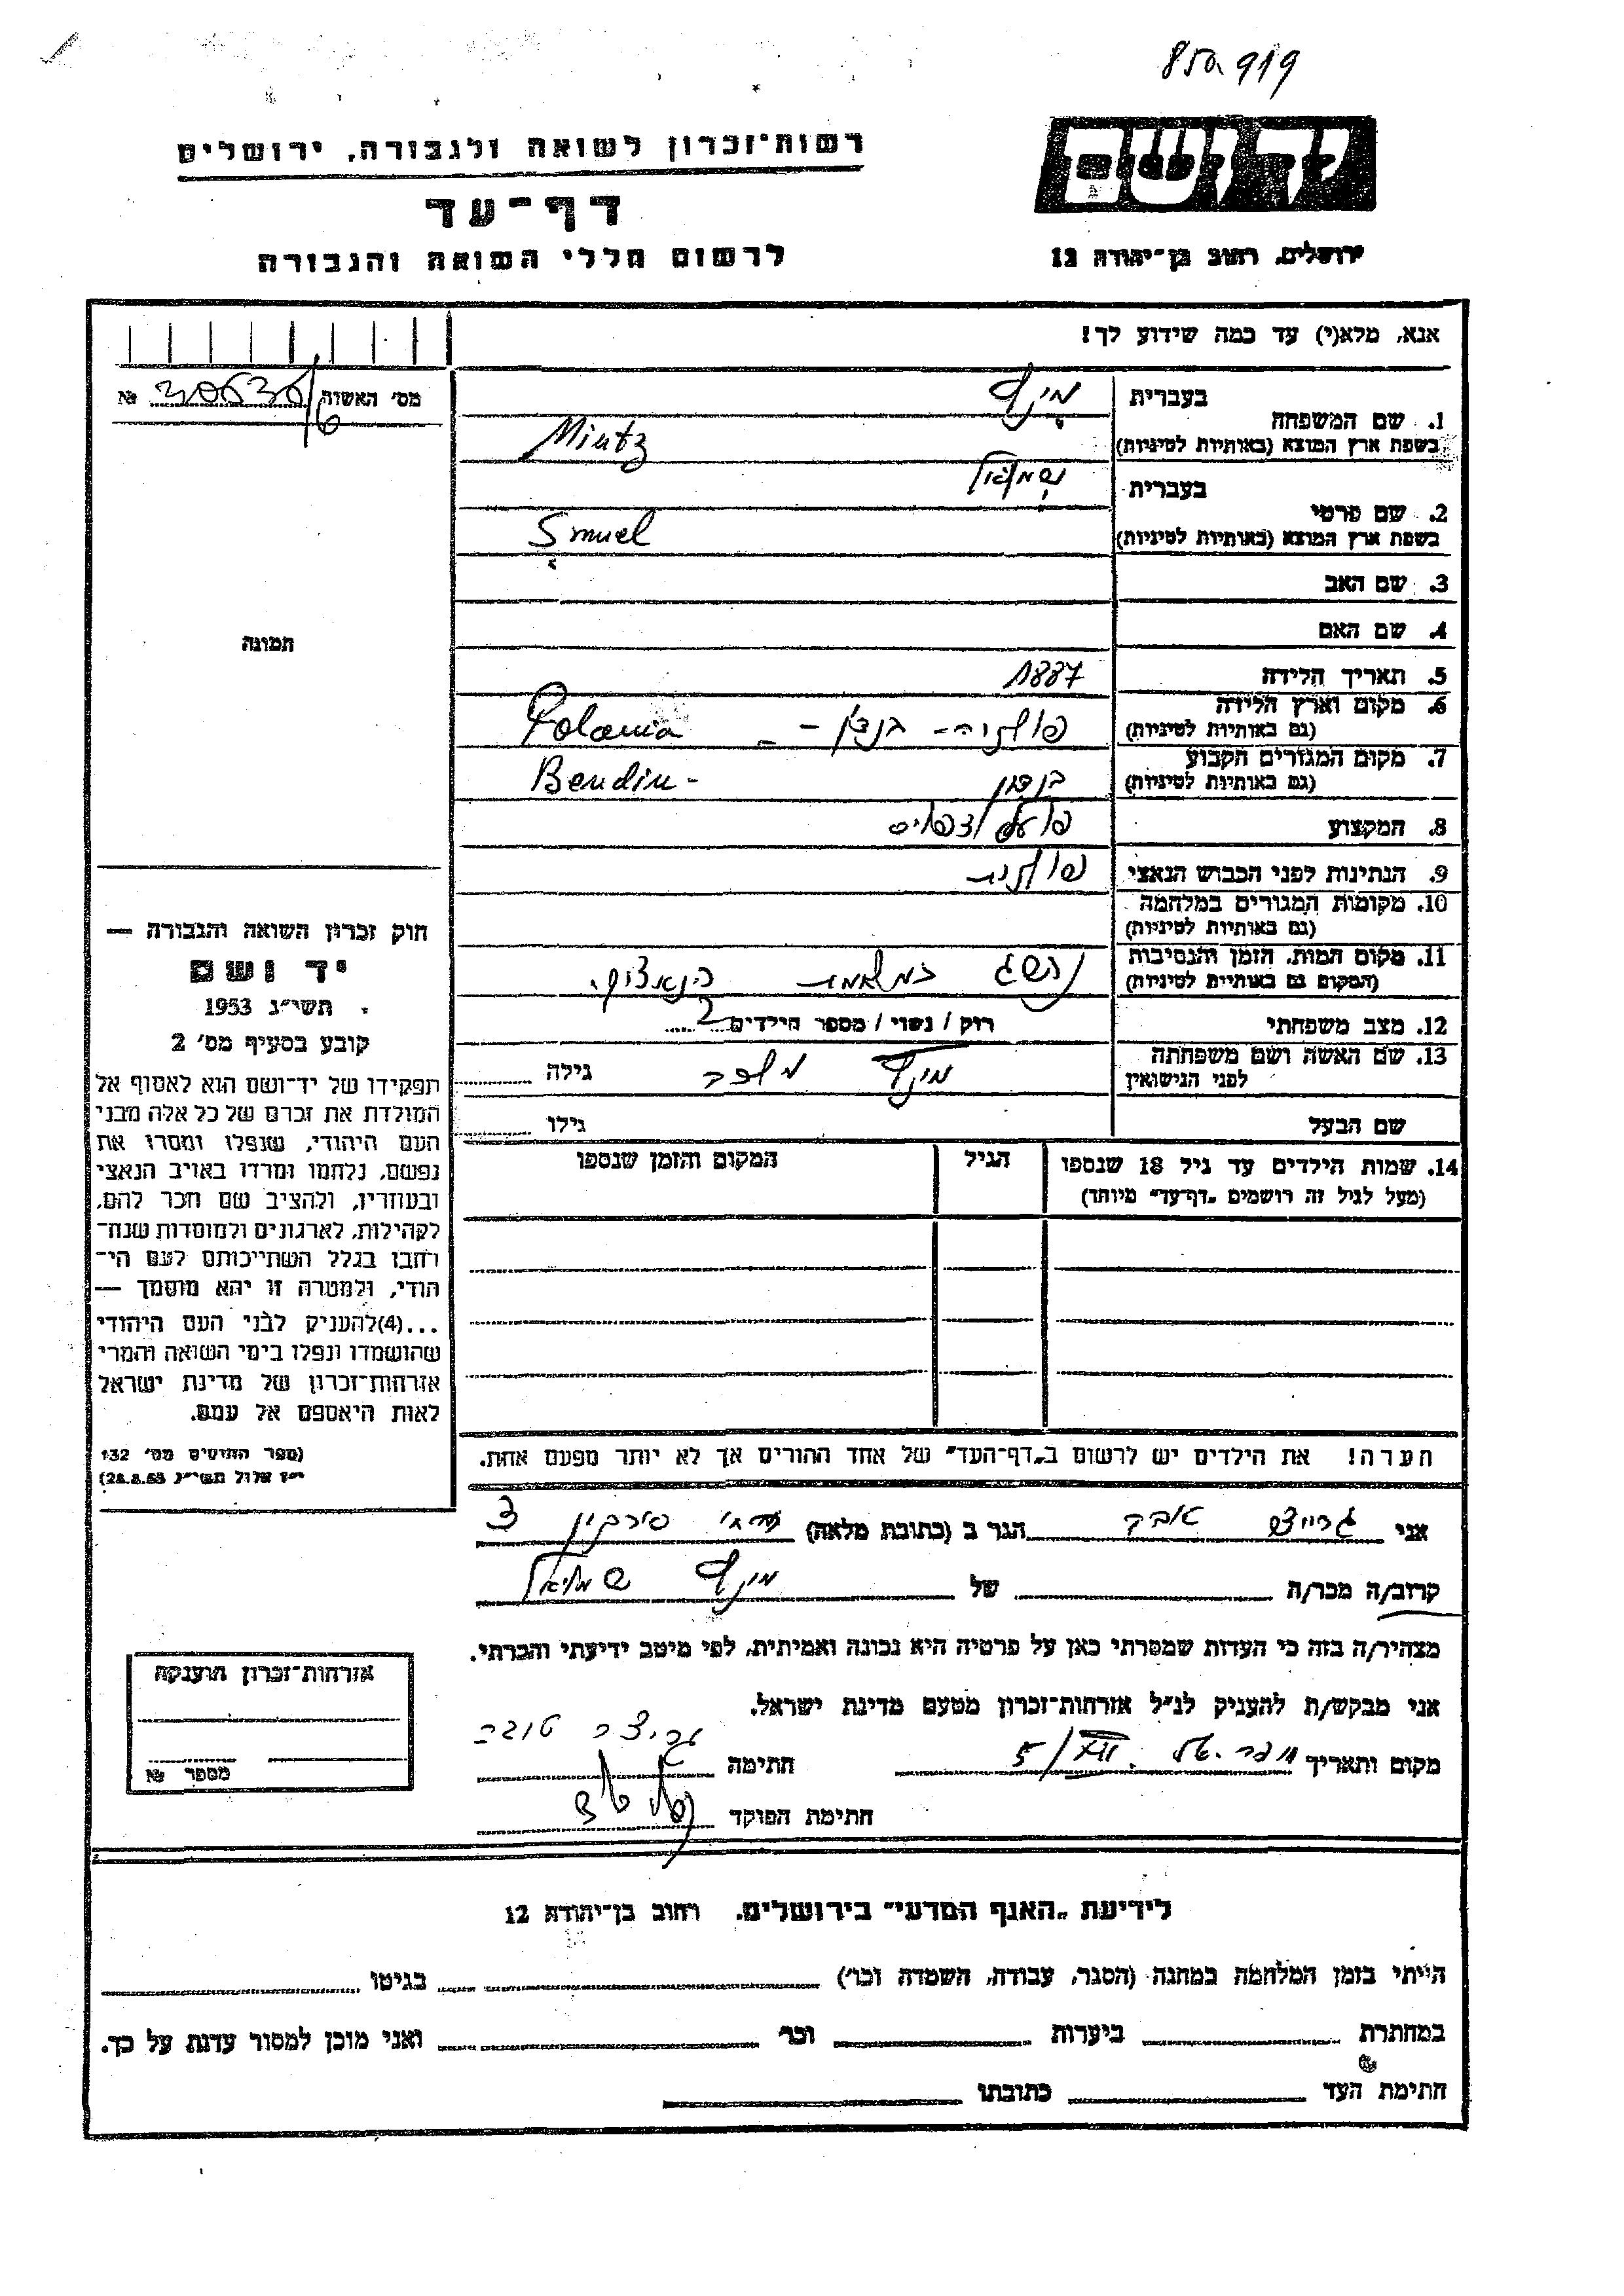 850919
רשות־זכרון לשואה ולגבורה, ירושלים
יד ושם
דף־עד
לרשום חללי השואה והגבורה
ירושלים, רחוב בן־יהודה 12
אנא, מלא(י) עד כמה שידוע לך!
מס' האשות №
1. שם המשפחה
בעברית מינץ
בשפת ארץ המוצא (באותיות לטיניות) Mintz
2. שם פרטי
בעברית שמואל
בשפת ארץ המוצא (באותיות לטיניות) Smuel
3. שם האב
4. שם האם
תמונה
5. תאריך הלידה 1887
6. מקום וארץ הלידה
(גם באותיות לטיניות) פולניה - בנדין - Polania
7. מקום המגורים הקבוע
(גם באותיות לטיניות) בנדין Bendin -
8. המקצוע פועל
9. הנתינות לפני הכבוש הנאצי פולנית
10. מקומות המגורים במלחמה
(גם באותיות לטיניות)
11. מקום המות, הזמן והנסיבות
(המקום גם באותיות לטיניות)
12. מצב משפחתי רווק / נשוי / מספר הילדים 2
13. שם האשה ושם משפחתה
לפני הנישואין מינץ גילה
שם הבעל גילו
14. שמות הילדים עד גיל 18 שנספו הגיל המקום והזמן שנספו
(מעל לגיל זה רושמים „דף־עד" מיוחד)
חוק זכרון השואה והגבורה —
יד ושם
תשי״ג 1953
קובע בסעיף מס' 2
תפקידו של יד־ושם הוא לאסוף אל
המולדת את זכרם של כל אלה מבני
העם היהודי, שנפלו ומסרו את
נפשם, נלחמו ומרדו באויב הנאצי
ובעוזריו, ולהציב שם וזכר להם,
לקהילות, לארגונים ולמוסדות שנח־
רבו בגלל השתייכותם לעם הי־
הודי, ולמטרה זו יהא מוסמך —
...(4) להעניק לבני העם היהודי
שהושמדו ונפלו בימי השואה והמרי
אזרחות־זכרון של מדינת ישראל
לאות היאספם אל עמם.
(ספר החוקים מס' 132
י״ז אלול תשי״ג 28.8.53)
הערה! את הילדים יש לרשום ב„דף־העד" של אחד ההורים אך לא יותר מפעם אחת.
אני הגר ב (כתובת מלאה) סירקין 3
קרוב/ה מכר/ה של מינץ שמואל
מצהיר/ה בזה כי העדות שמסרתי כאן על פרטיה היא נכונה ואמיתית, לפי מיטב ידיעתי והכרתי.
אני מבקש/ת להעניק לנ״ל אזרחות־זכרון מטעם מדינת ישראל.
מקום ותאריך 5/XII חתימה טובה
חתימת הפוקד
אזרחות־זכרון הוענקה
מספר №
לידיעת „האגף המדעי" בירושלים, רחוב בן־יהודה 12
הייתי בזמן המלחמה במחנה (הסגר, עבודה, השמדה וכו') בגיטו
במחתרת ביערות וכו' ואני מוכן למסור עדות על כך.
חתימת העד כתובתו